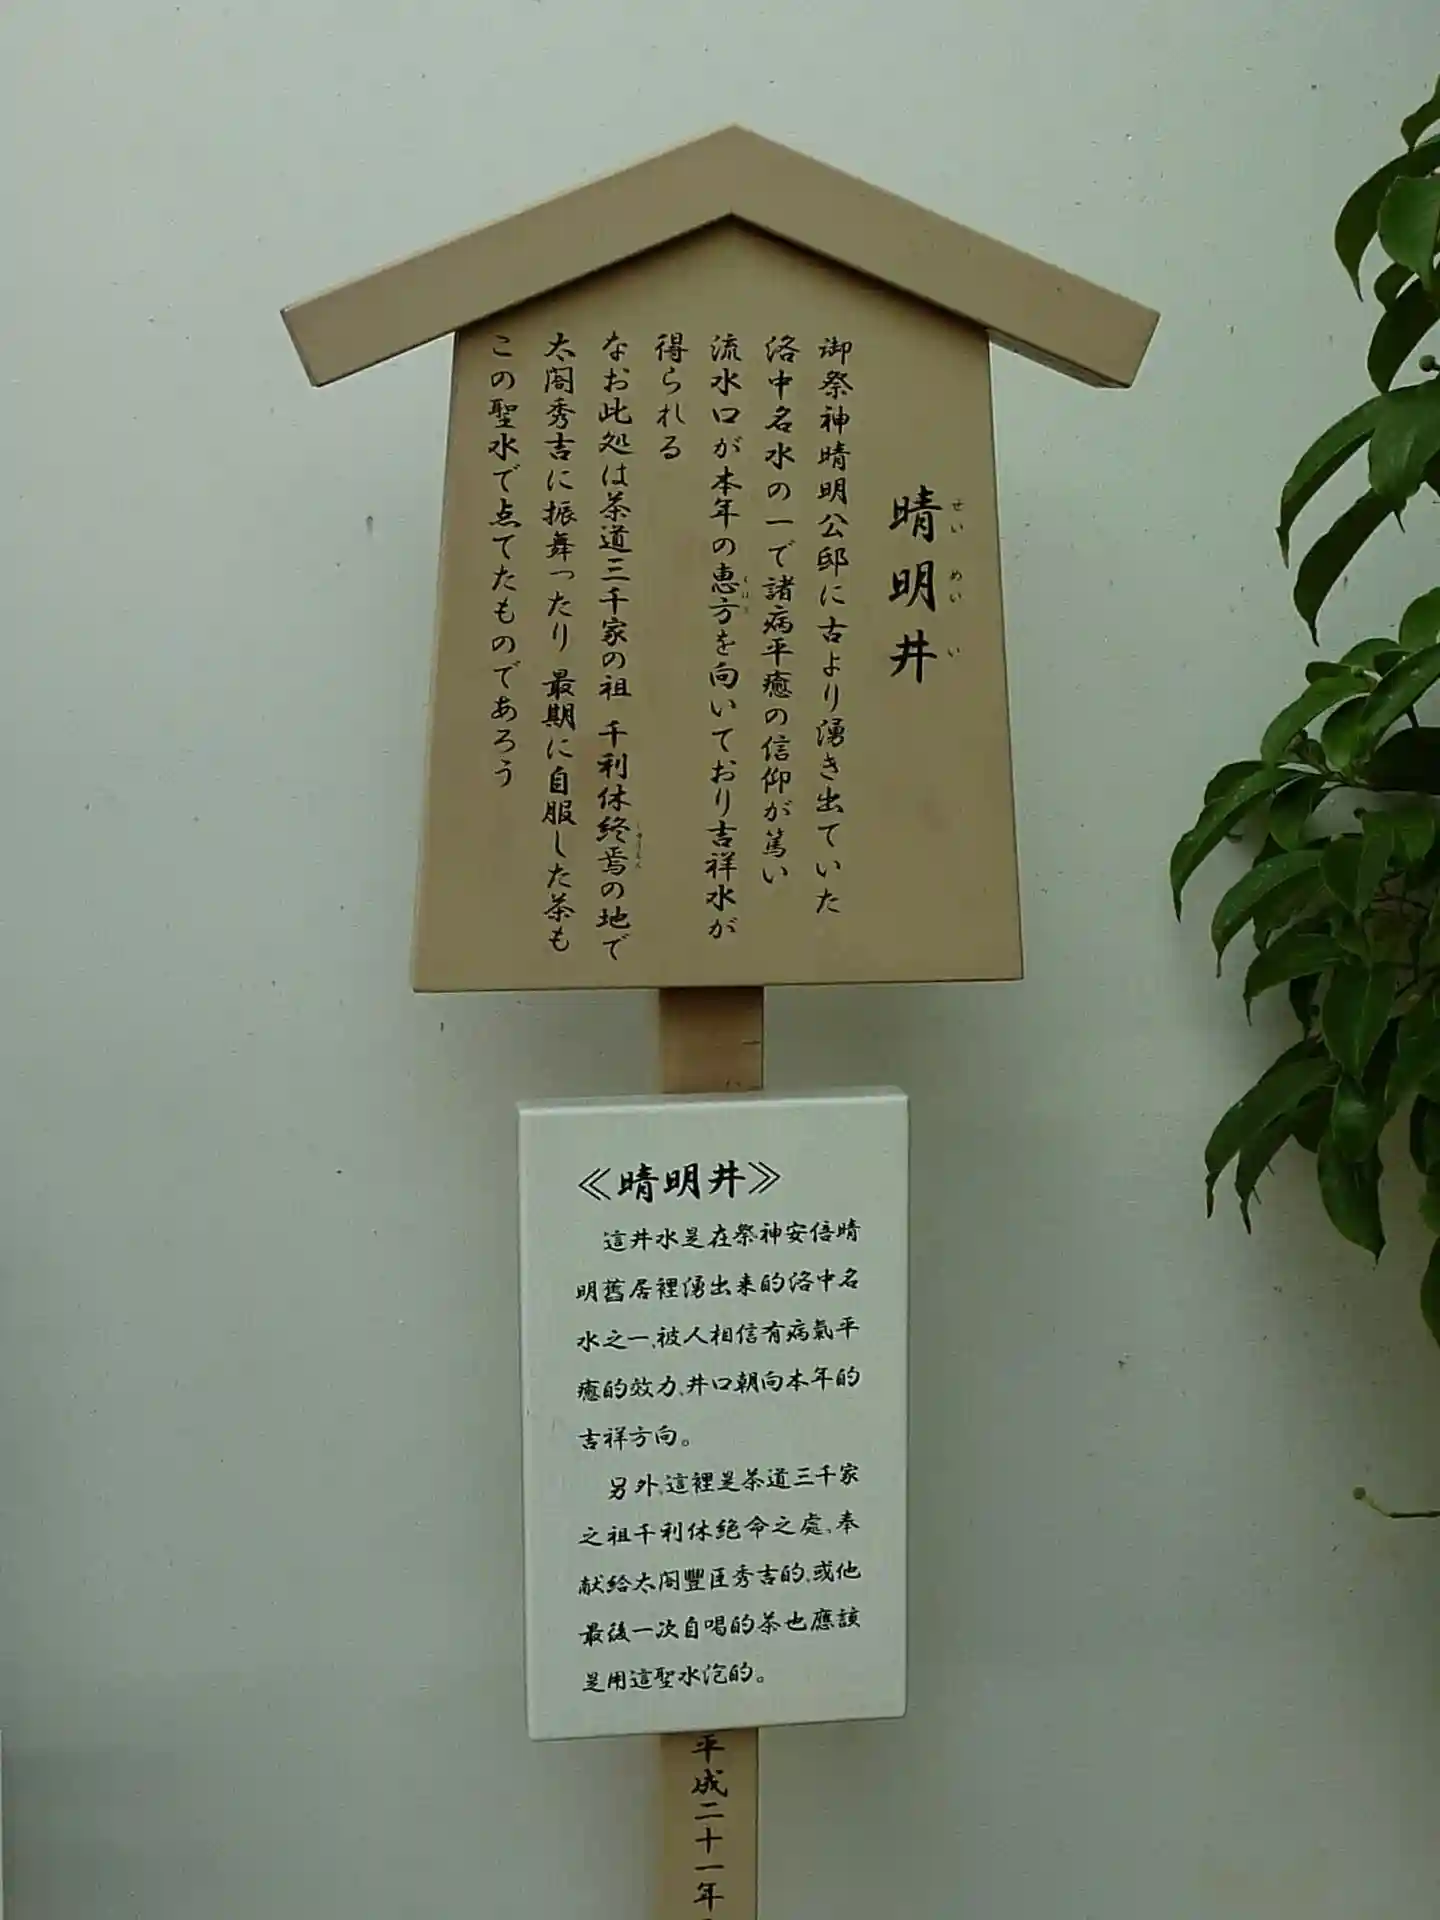 晴明井
せいめいい
御祭神晴明公邸に古より湧き出ていた
洛中名水の一で諸病平癒の信仰が篤い
流水口が本年の恵方を向いており吉祥水が
得られる
なお此処は茶道三千家の祖 千利休終焉の地で
しゅうえん
太閤秀吉に振舞ったり 最期に自服した茶も
この聖水で点てたものであろう
≪晴明井≫
這井水是在祭神安倍晴
明舊居裡湧出来的洛中名
水之一,被人相信有病氣平
癒的效力,井口朝向本年的
吉祥方向。
另外,這裡是茶道三千家
之祖千利休絶命之處,奉
献給太閤豐臣秀吉的,或他
最後一次自喝的茶也應該
是用這聖水泡的。
平成二十一年